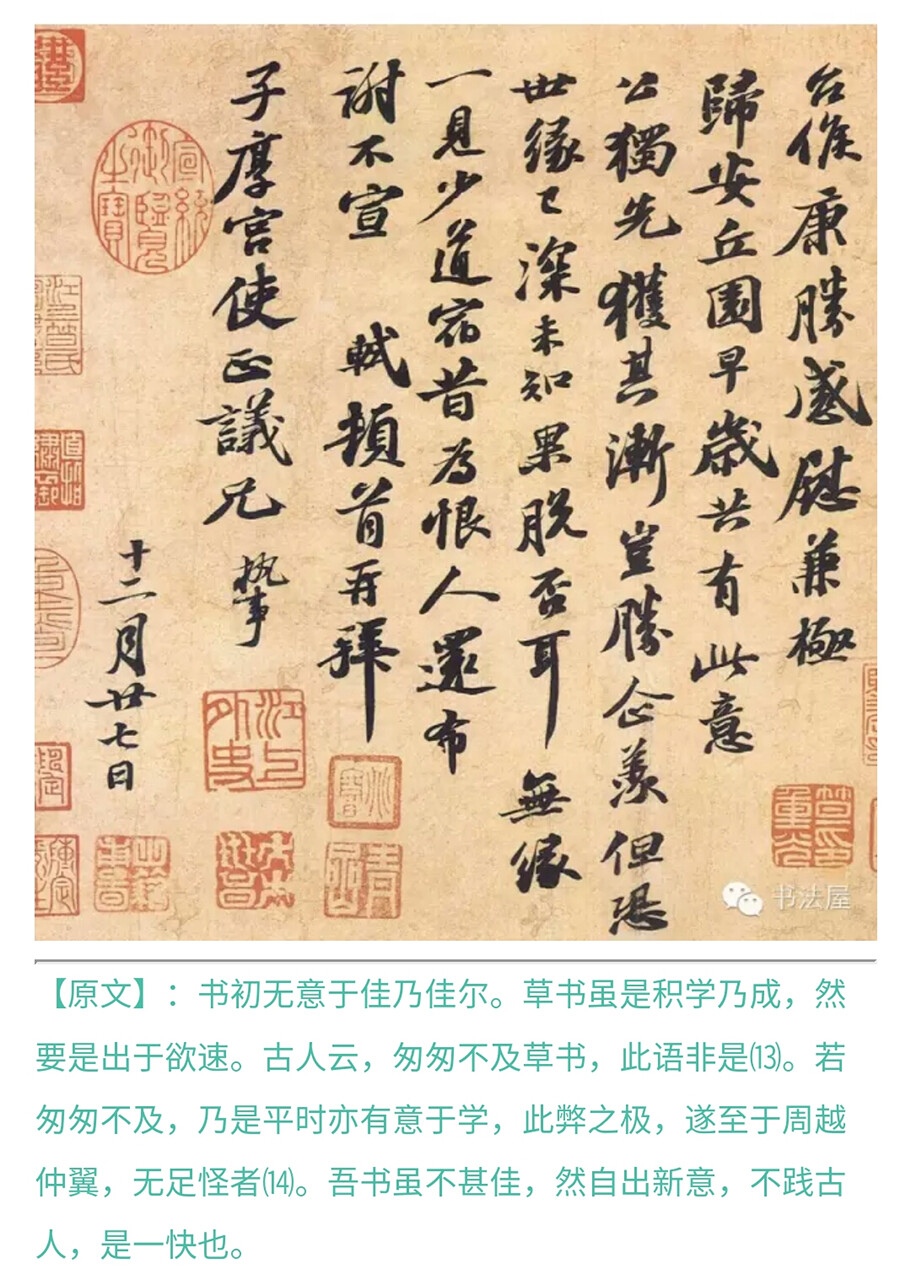 台候康勝感慰兼極
歸安丘園早歲共有此意
公獨先獲其漸豈勝企羨但恐
世緣已深未知果脫否耳無緣
一見少道宿昔為恨人還布
謝不宣 軾頓首再拜
子厚宮使正議兄 執事
十二月廿七日
宣統御覽之寶
江上外史
笪重光印
书法屋
【原文】：书初无意于佳乃佳尔。草书虽是积学乃成，然
要是出于欲速。古人云，匆匆不及草书，此语非是⒀。若
匆匆不及，乃是平时亦有意于学，此弊之极，遂至于周越
仲翼，无足怪者⒁。吾书虽不甚佳，然自出新意，不践古
人，是一快也。